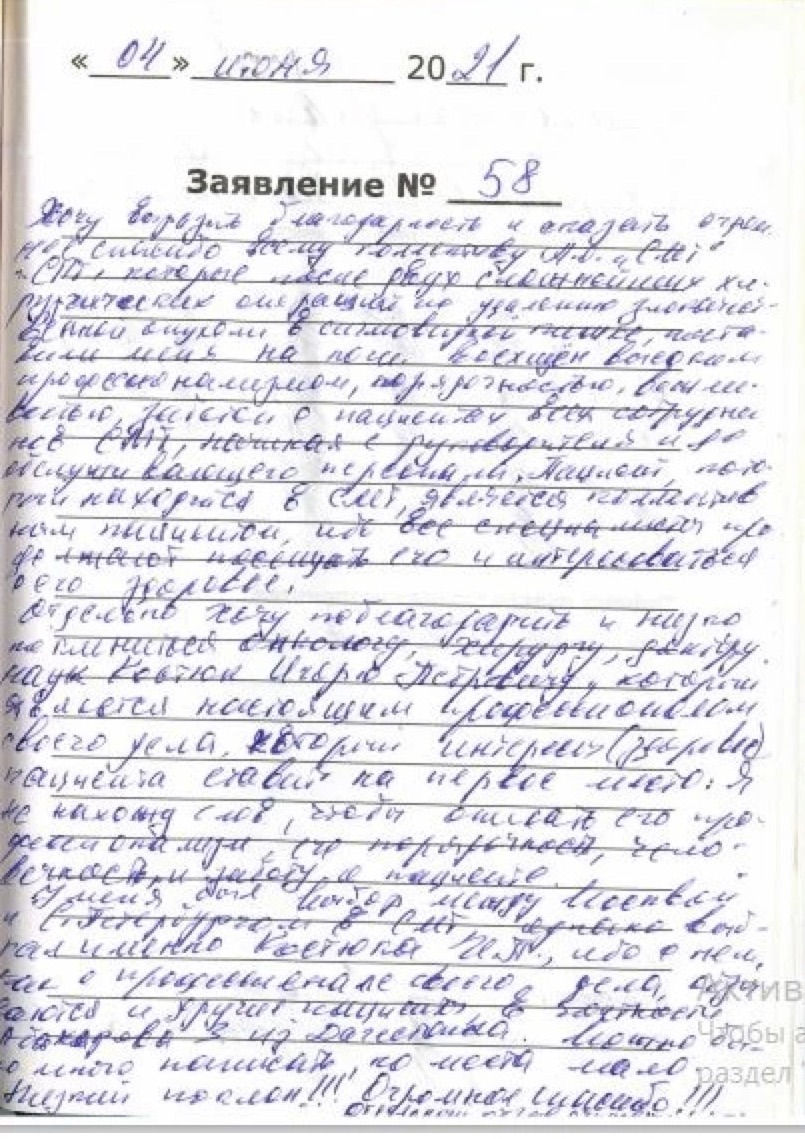 « 04 » июня 20 21 г.
Заявление № 58
Хочу выразить благодарность и сказать огром
ное спасибо всему коллективу АО „СМТ"
которые после двух сложнейших хи-
рургических операций по удалению злокачест-
венной опухоли в сигмовидной кишке, поста-
вили меня на ноги. Восхищён высоким
профессионализмом, порядочностью, вежли-
востью, заботой о пациентах всех сотрудни
ков СМТ, начиная с руководителя и до
обслуживающего персонала. Пациент, кото-
рый находится в СМТ, является коллектив
ным пациентом, ибо все специалисты про
должают посещать его и интересоваться
его здоровье.
Отдельно хочу поблагодарить и низко
поклониться онкологу, хирургу, доктору
наук Костюк Игорю Петровичу, который
является настоящим профессионалом
своего дела, который интересы (здоровье)
пациента ставит на первое место. Я
не нахожу слов, чтобы описать его про-
фессионализм, его порядочность, чело-
вечность и заботу о пациенте.
У меня был выбор между Москвой
и С. Петербургом в СМТ однако выб-
рал именно Костюка И.П., ибо о нем,
как о профессионале своего дела, отзы
ваются и другие пациенты в частности
из Дагестана. Можно
много написать, но места мало
Низкий поклон!!! Огромное спасибо!!!
Чтобы а
раздел